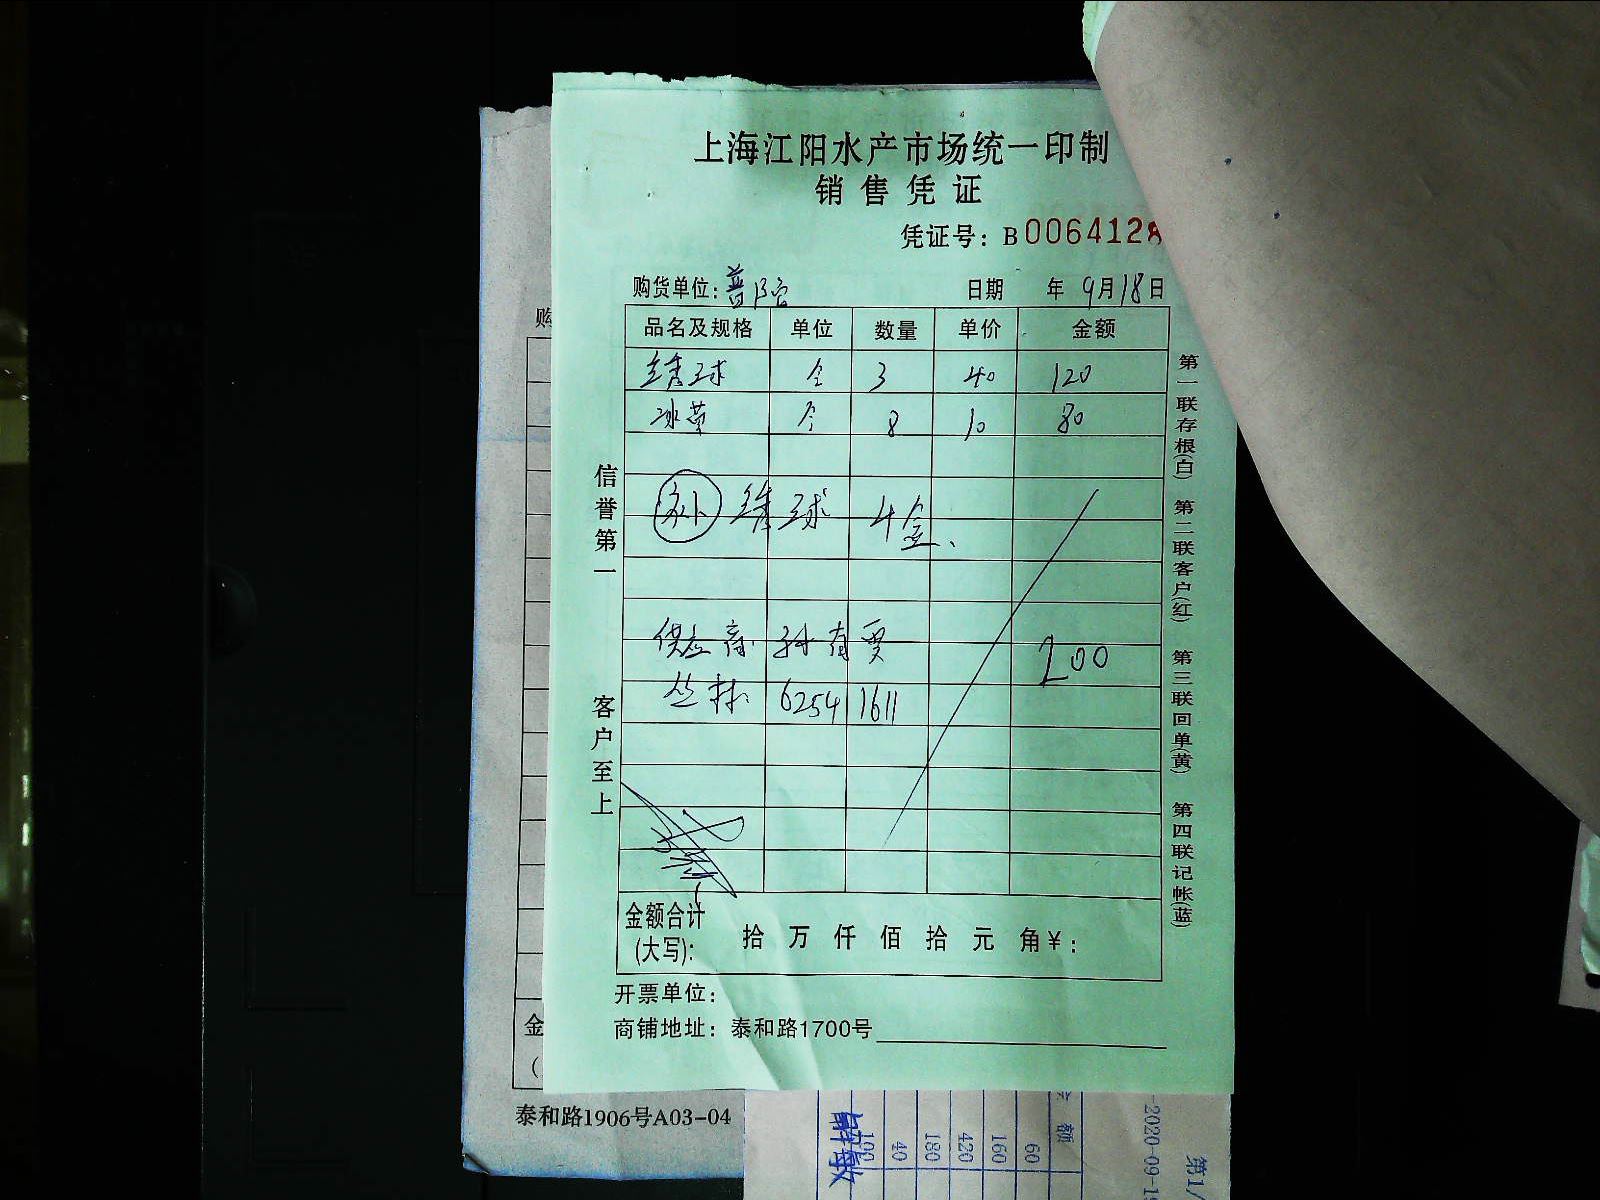 上海江阳水产市场统一印制
销售凭证
凭证号：B0064128
购货单位：普陀 日期 年 9月18日
品名及规格 单位 数量 单价 金额
绣球 3 40 120
8 10 80
补 绣球 4盒、
供应商 孙有贾 200
丛林 62541611
信誉第一
客户至上
第一联存根(白) 第二联客户(红) 第三联回单(黄) 第四联记帐(蓝)
金额合计
(大写)： 拾 万 仟 佰 拾 元 角¥：
开票单位：
商铺地址：泰和路1700号
购
金
(
泰和路1906号A03-04
额
60
160
420
180
40
100
-2020-09-1
第1/